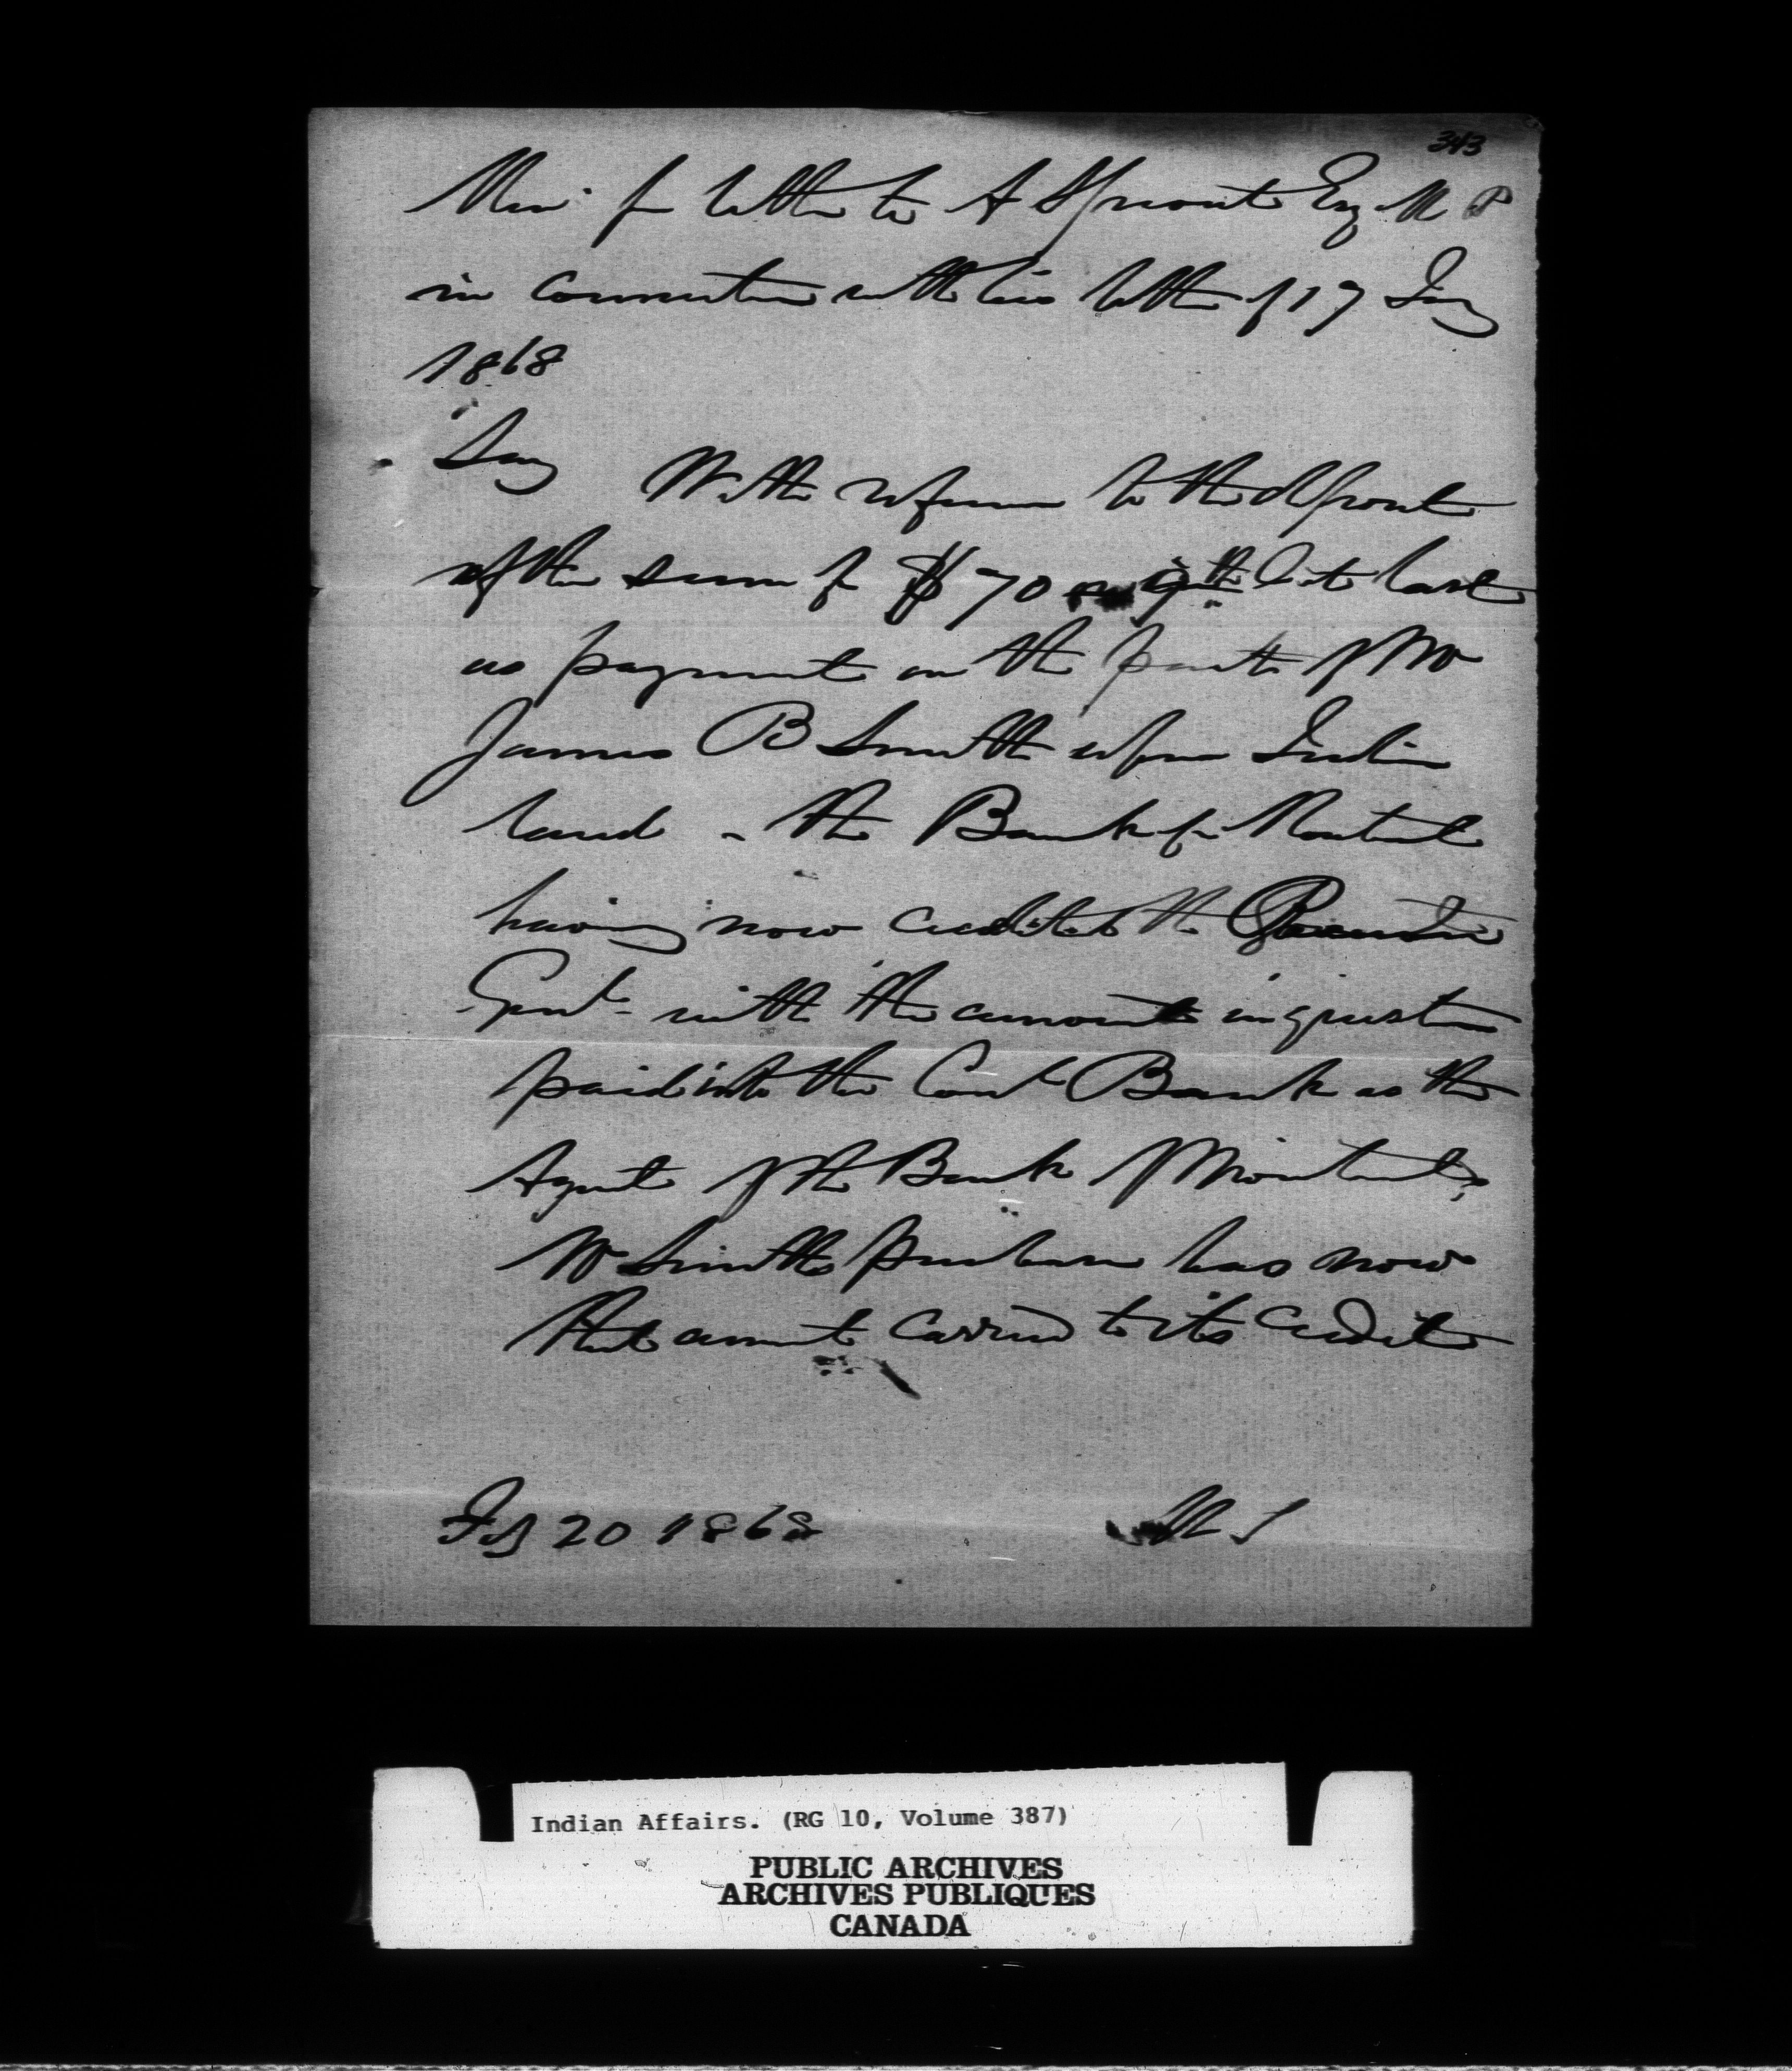 343
Min for letter to A Sproat Esq M P
in connection with his letter of 17 Jany
1868
Say With reference to the deposit
of the sum of $70 on 9th Oct last
as payment on the part of Mr
James B Smith upon Indian
land - the Bank of Montreal
having now credited the Receiver
Genl - with the amount in question
paid into the Coml Bank as the
Agent of the Bank of Montreal,
Mr Smiths purchase has now
that amount carried to its credit
Feby 20 1868
Indian Affairs. (RG 10, Volume 387)
PUBLIC ARCHIVES
ARCHIVES PUBLIQUES
CANADA